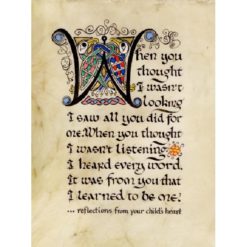 When you
thought
I wasn't
looking
I saw all you did for
me. When you thought
I wasn't listening
I heard every word.
It was from you that
I learned to be me!
... reflections from your child's heart